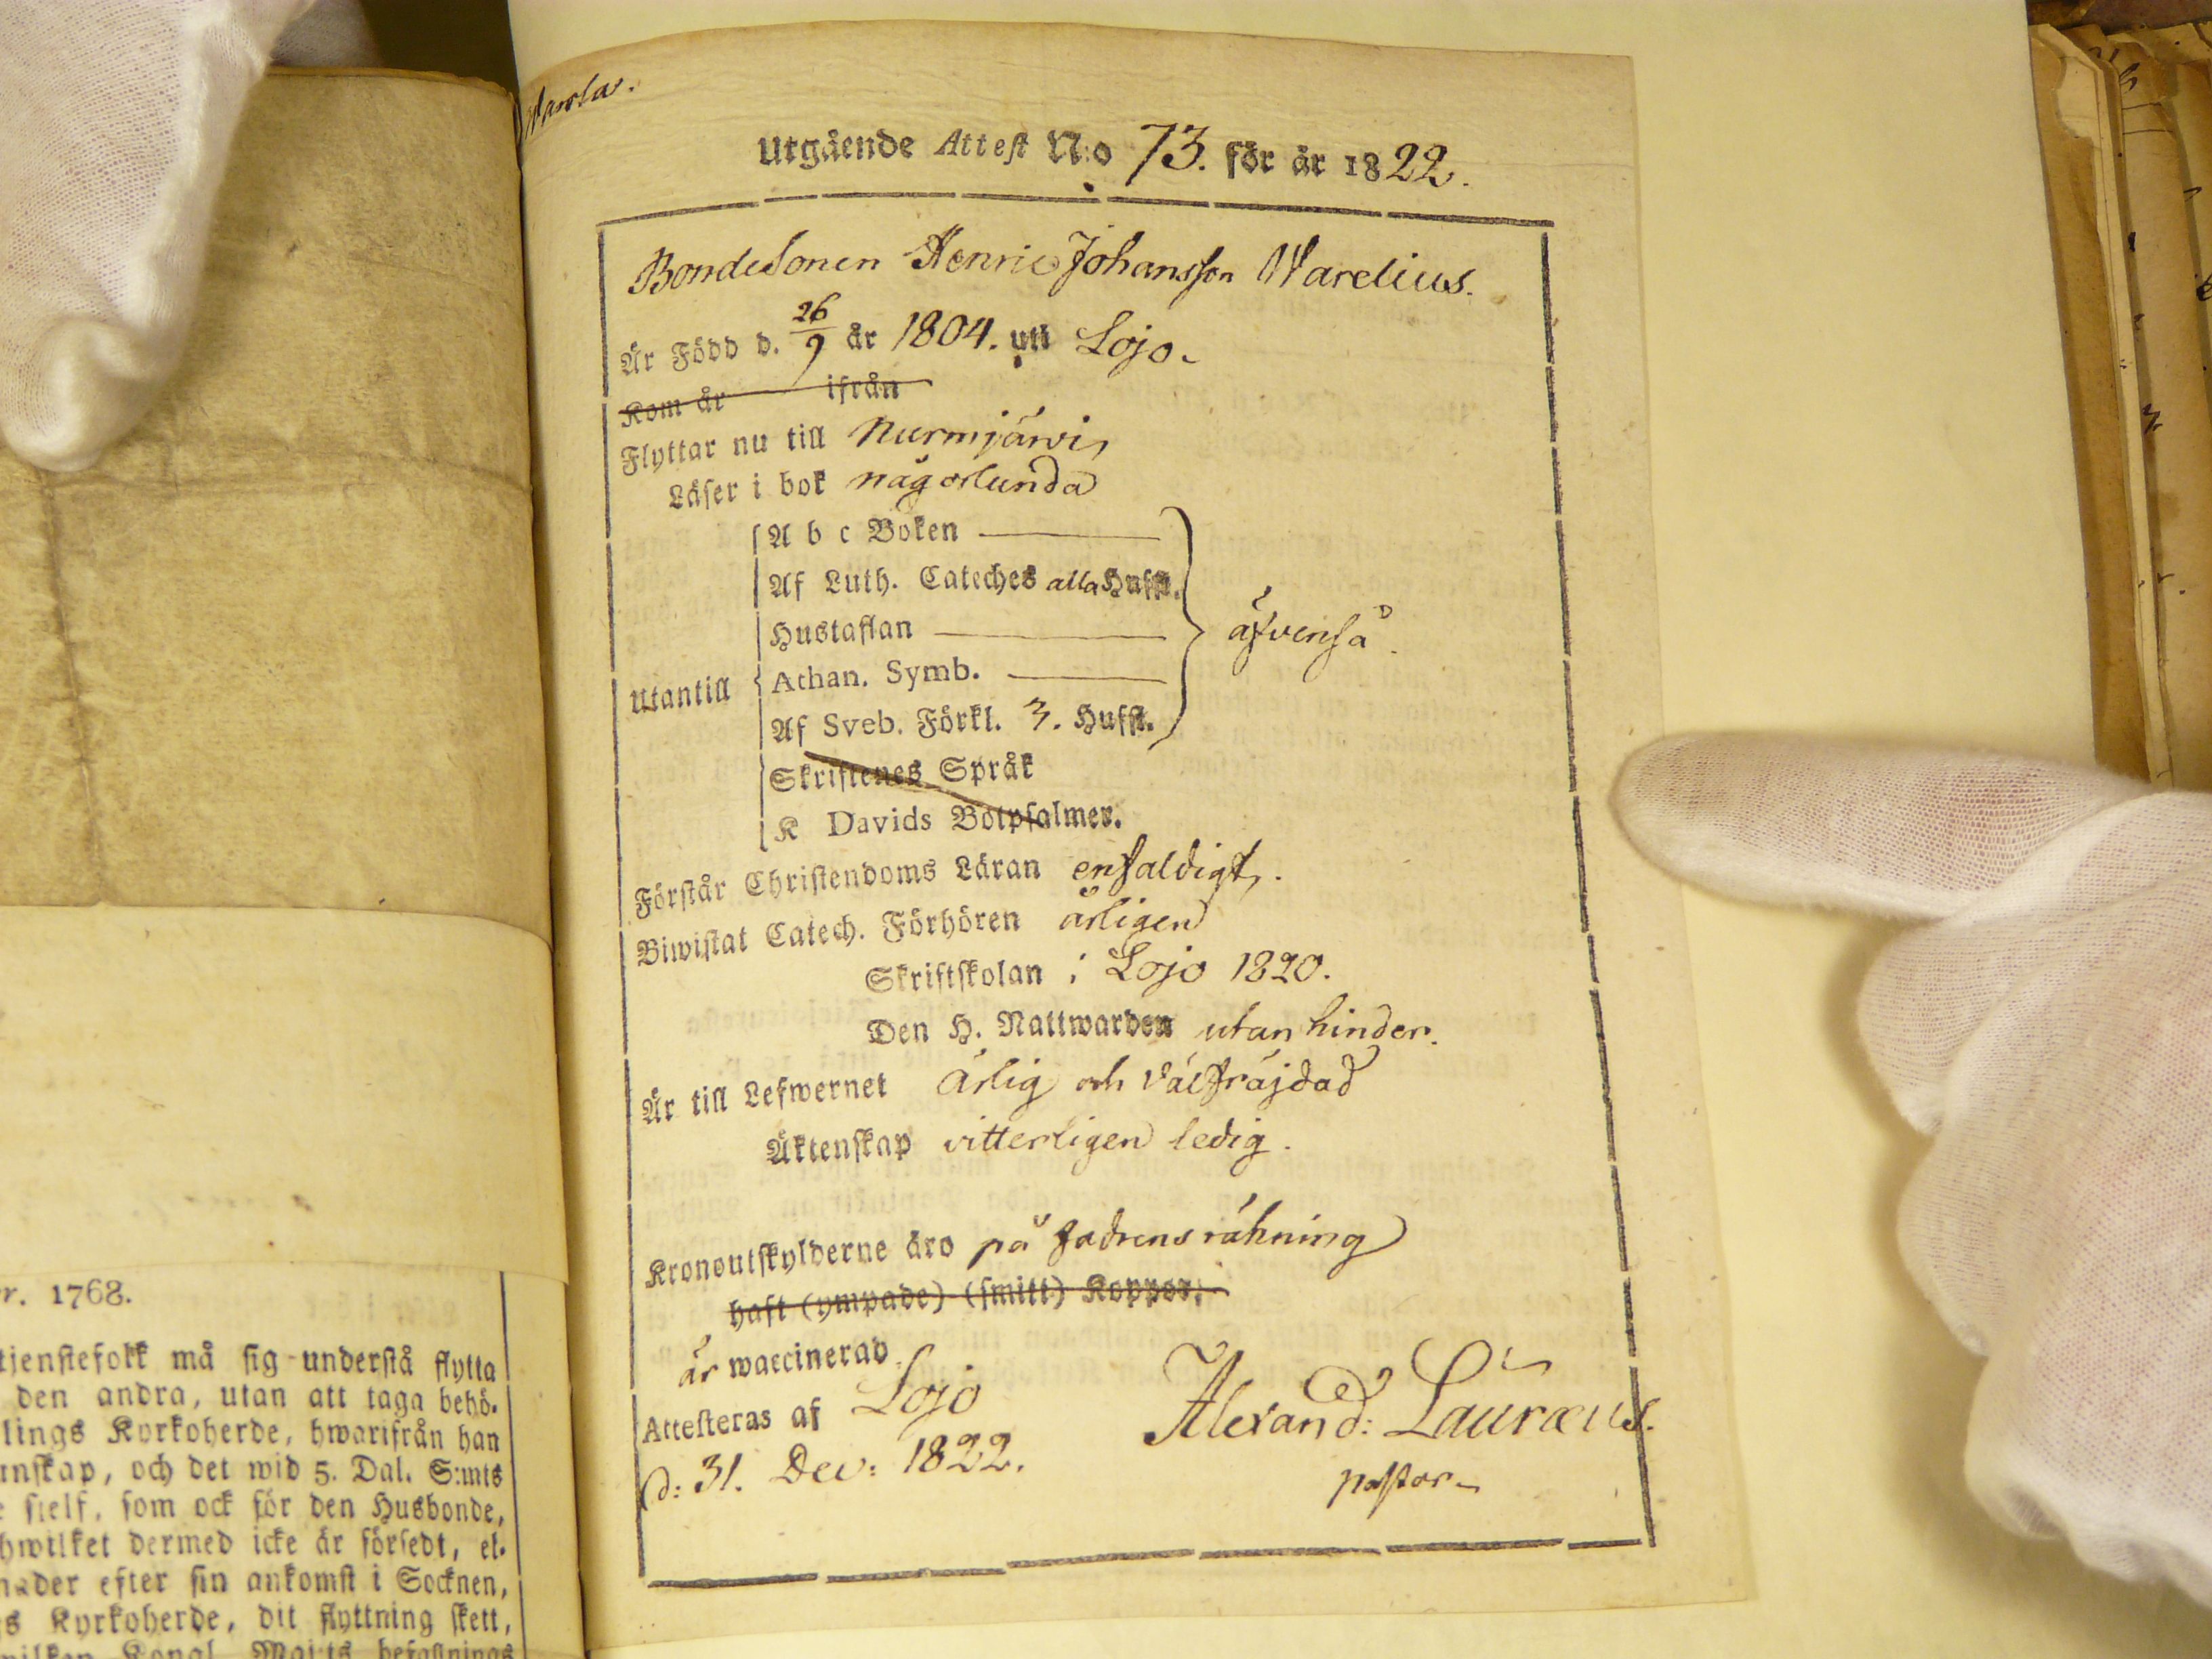 Utgående Attest N:o 73. för år 1822.
Bondesonen Henric Johansson Warelius.
Är Född d. 26/9 år 1804. uti Lojo.
Kom år ifrån
Flyttar nu till Nurmijärvi,
Läser i bok någorlunda
A b c Boken
Af Luth. Cateches alla Hufst.
Hustaflan
äfvenså.
Utantill
Athan. Symb.
Af Sveb. Förkl. 3. Hufst.
Skriftenes Språk
K Davids Botpsalmer.
Förstår Christendoms Läran enfaldigt.
Biwistat Catech. Förhören årligen
Skriftskolan i Lojo 1820.
Den H. Nattwarden utan hinder.
Är till Lefwernet ärlig och välfräjdad
Äktenskap vitterligen ledig.
Kronoutskylderne äro på fadrens räkning
haft (ympade) (smitt) Koppor,
är waccinerad
Attesteras af Lojo
d: 31. Dec: 1822.
Alexand: Lauræus.
pastor
r. 1768.
tjenstefolk må sig understå flytta
den andra, utan att taga behö-
lings Kyrkoherde, hwarifrån han
unskap, och det wid 5. Dal. S:mts
sielf, som ock för den Husbonde,
hwilket dermed icke är försedt, el-
nader efter sin ankomst i Socknen,
s Kyrkoherde, dit flyttning skett,
Kongl. Maj:ts befallnings